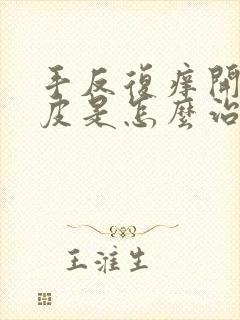 手反復痒開
皮是怎麼治
王淮生